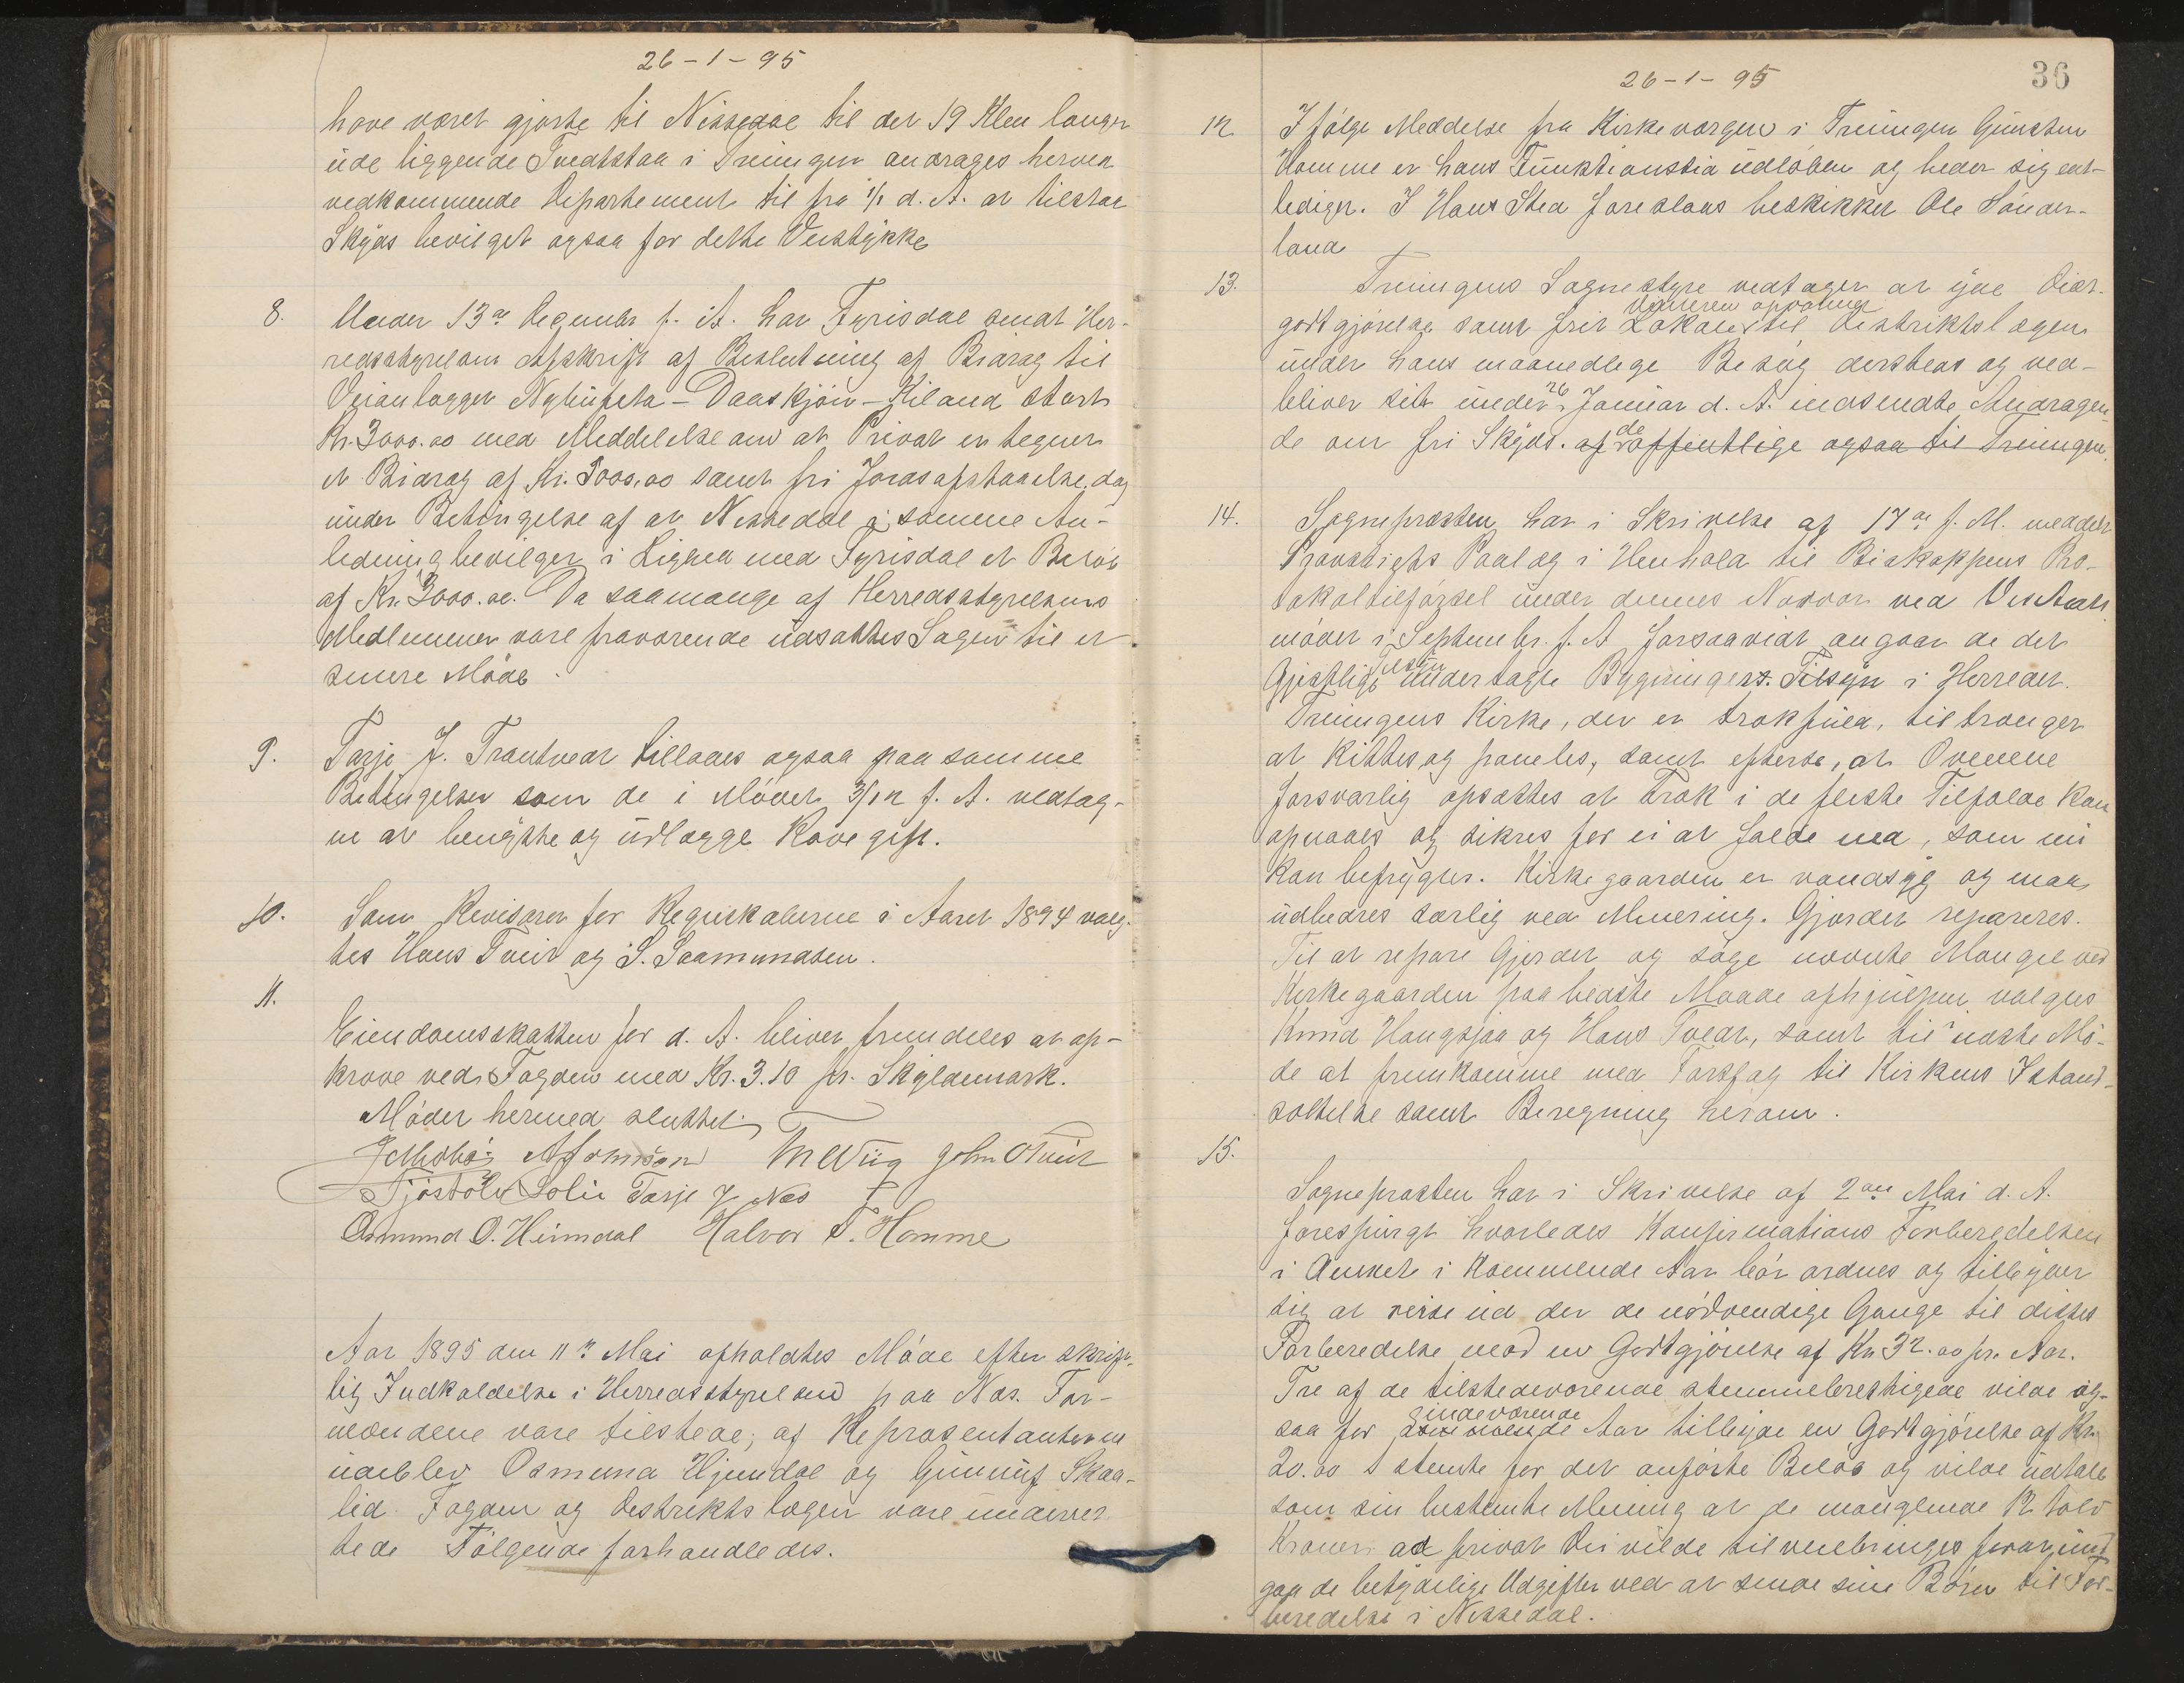 26-1-95
have været gjorte til Nissedal til det 19 Klm længer
ude liggende Tvedtstaa i Treungen andrages herved
vedkommende Departement til fra 1/1 d. A. at tilstaa
Skyds bevilget ogsaa for dette Veistykke
8. Under 13de Decembr f. A. har Fyrisdal sendt Her-
redsstyrelsen Afskrift af Beslutning af Bidrag til
Veianlægget Nybufeta - Daaskjön - Kiland stort
Kr. 3000.00 med Meddelelse om at Privat er tegnet
et Bidrag af Kr. 3000,00 samt fri Jordafstaaelse, dog
under Betingelse af at Nissedal i samme An-
ledning bevilger i Lighed med Fyrisdal et Belöb
af Kr. 3000.00. Da saamange af Herredsstyrelsens
Medlemmer vare fraværende udsattes Sagen til et
senere Möde.
9. Tarje J. Trontveit tillades ogsaa paa samme
Betingelser som de i Mödet 3/12 f. A. vedtag-
ne at benytte og udlægge Rævegift.
10. Som Revisorer for Regnskaberne i Aaret 1894 valg-
tes Hans Tveit og S. Saamundsen.
11.
Eiendomsskatten for d. A. bliver fremdeles at op-
kræve ved Fogden med Kr. 3.10 pr. Skyldmark.
Mödet hermed sluttet
John O Tveit
Tjöstolv Solli Tarje J. Næs
Osmund O. Heimdal Halvor T. Homme
Aar 1895 den 11te Mai afholdtes Möde efter skrift-
lig Indkaldelse i Herredsstyrelsen paa Næs. For-
mændene vare tilstede; af Repræsentanterne
udeblev Osmund Hjemdal og Gunnuf Skaa-
lid. Fogden og Destriktslægen vare underret-
tede Fölgende forhandledes.
26-1-95
36
12 Ifölge Meddelse fra Kirkeværgen i Treungen Gunsten
Homme er hans Funktionstid udlöben og beder sig ent-
lediget. I Hans Sted foreslaas beskikket Ole Sönder-
land
13. Treungens Sognestyre vedtager at yde Diæt-
godtgjörelse samt frit Lokale til Distriktslægen
under hans maanedlige Besög dersteds og ved-
bliver sit under 26 Januar d. A. indsendte Andragen-
de om fri Skyds. af de offentlige ogsaa til Treungen.
14. Sognepræsten har i Skrivelse af 17de f. M. meddelt
Provstiets Paalæg i Henhold til Biskoppens Pro-
tokoltilförsel under dennes Nærvær ved
mödet i Septembr. f. A forsaavidt angaar de det
Gjeistlige Tilsyn undertagte Bygninger. Tilsyn i Herredet.
Treungens Kirke, der er trækfuld, tiltrænger
at Kittes og paneles, samt efterse, at Ovnene
forsvarlig opsættes at Træk i de fleste Tilfælde kan
opnaaes og sikres for ei at falde ned, som nu
kan befrygtes. Kirkegaarden er vandsyg og maa
udbedres særlig ved Muering. Gjærdet repareres.
Til at repare Gjerdet og söge nævnte Mangel ved
Kirkegaarden paa bedste Maade ophjulpen valgtes
Knud Haugsjaa og Hans Tvedt, samt til næste Mö-
de at fremkomme med Forslag til Kirkens Istand-
sættelse samt Beregning herom.
15.
Sognepræsten har i Skrivelse af 2den Mai d. A.
forespurgt hvorledes Konfirmations Forberedelsen
i Annexet i kommende Aar bör ordnes og tilbyder
sig at reise ud der de nödvendige Gange til disses
Forberedelse med en Godtgjörelse af Kr. 32.00 pr. Aar.
Tre af de tilstedeværende stemmeberettigede vilde og-
saa for indeværende Aar tilbyde en Godtgjörelse af Kr.
20.00 1 stemte for det anförte Belöb og vilde udtale
som sin bestemte Mening at de manglende 12 tolv
Kroner ad privat Vei vilde tilveiebringes for at und-
gaa de betydelige Udgifter ved at sende sine Börn til For-
beredelse i Nissedal.